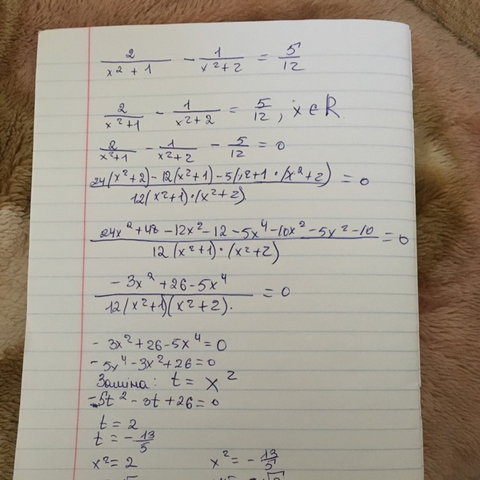 2/(x² + 1) - 1/(x² + 2) = 5/12
2/(x²+1) - 1/(x²+2) = 5/12, x ∈ R
2/(x²+1) - 1/(x²+2) - 5/12 = 0
24(x²+2) - 12(x²+1) - 5(x²+1·(x²+2)/12(x²+1)·(x²+2) = 0
24x²+48 - 12x² - 12 - 5x⁴ - 10x² - 5x² - 10/12(x²+1)·(x²+2) = 0
-3x² + 26 - 5x⁴/12(x²+1)(x²+2). = 0
- 3x² + 26 - 5x⁴ = 0
- 5x⁴ - 3x² + 26 = 0
Заміна: t = x²
-5t² - 3t + 26 = 0
t = 2
t = -13/5
x² = 2 x² = -13/5